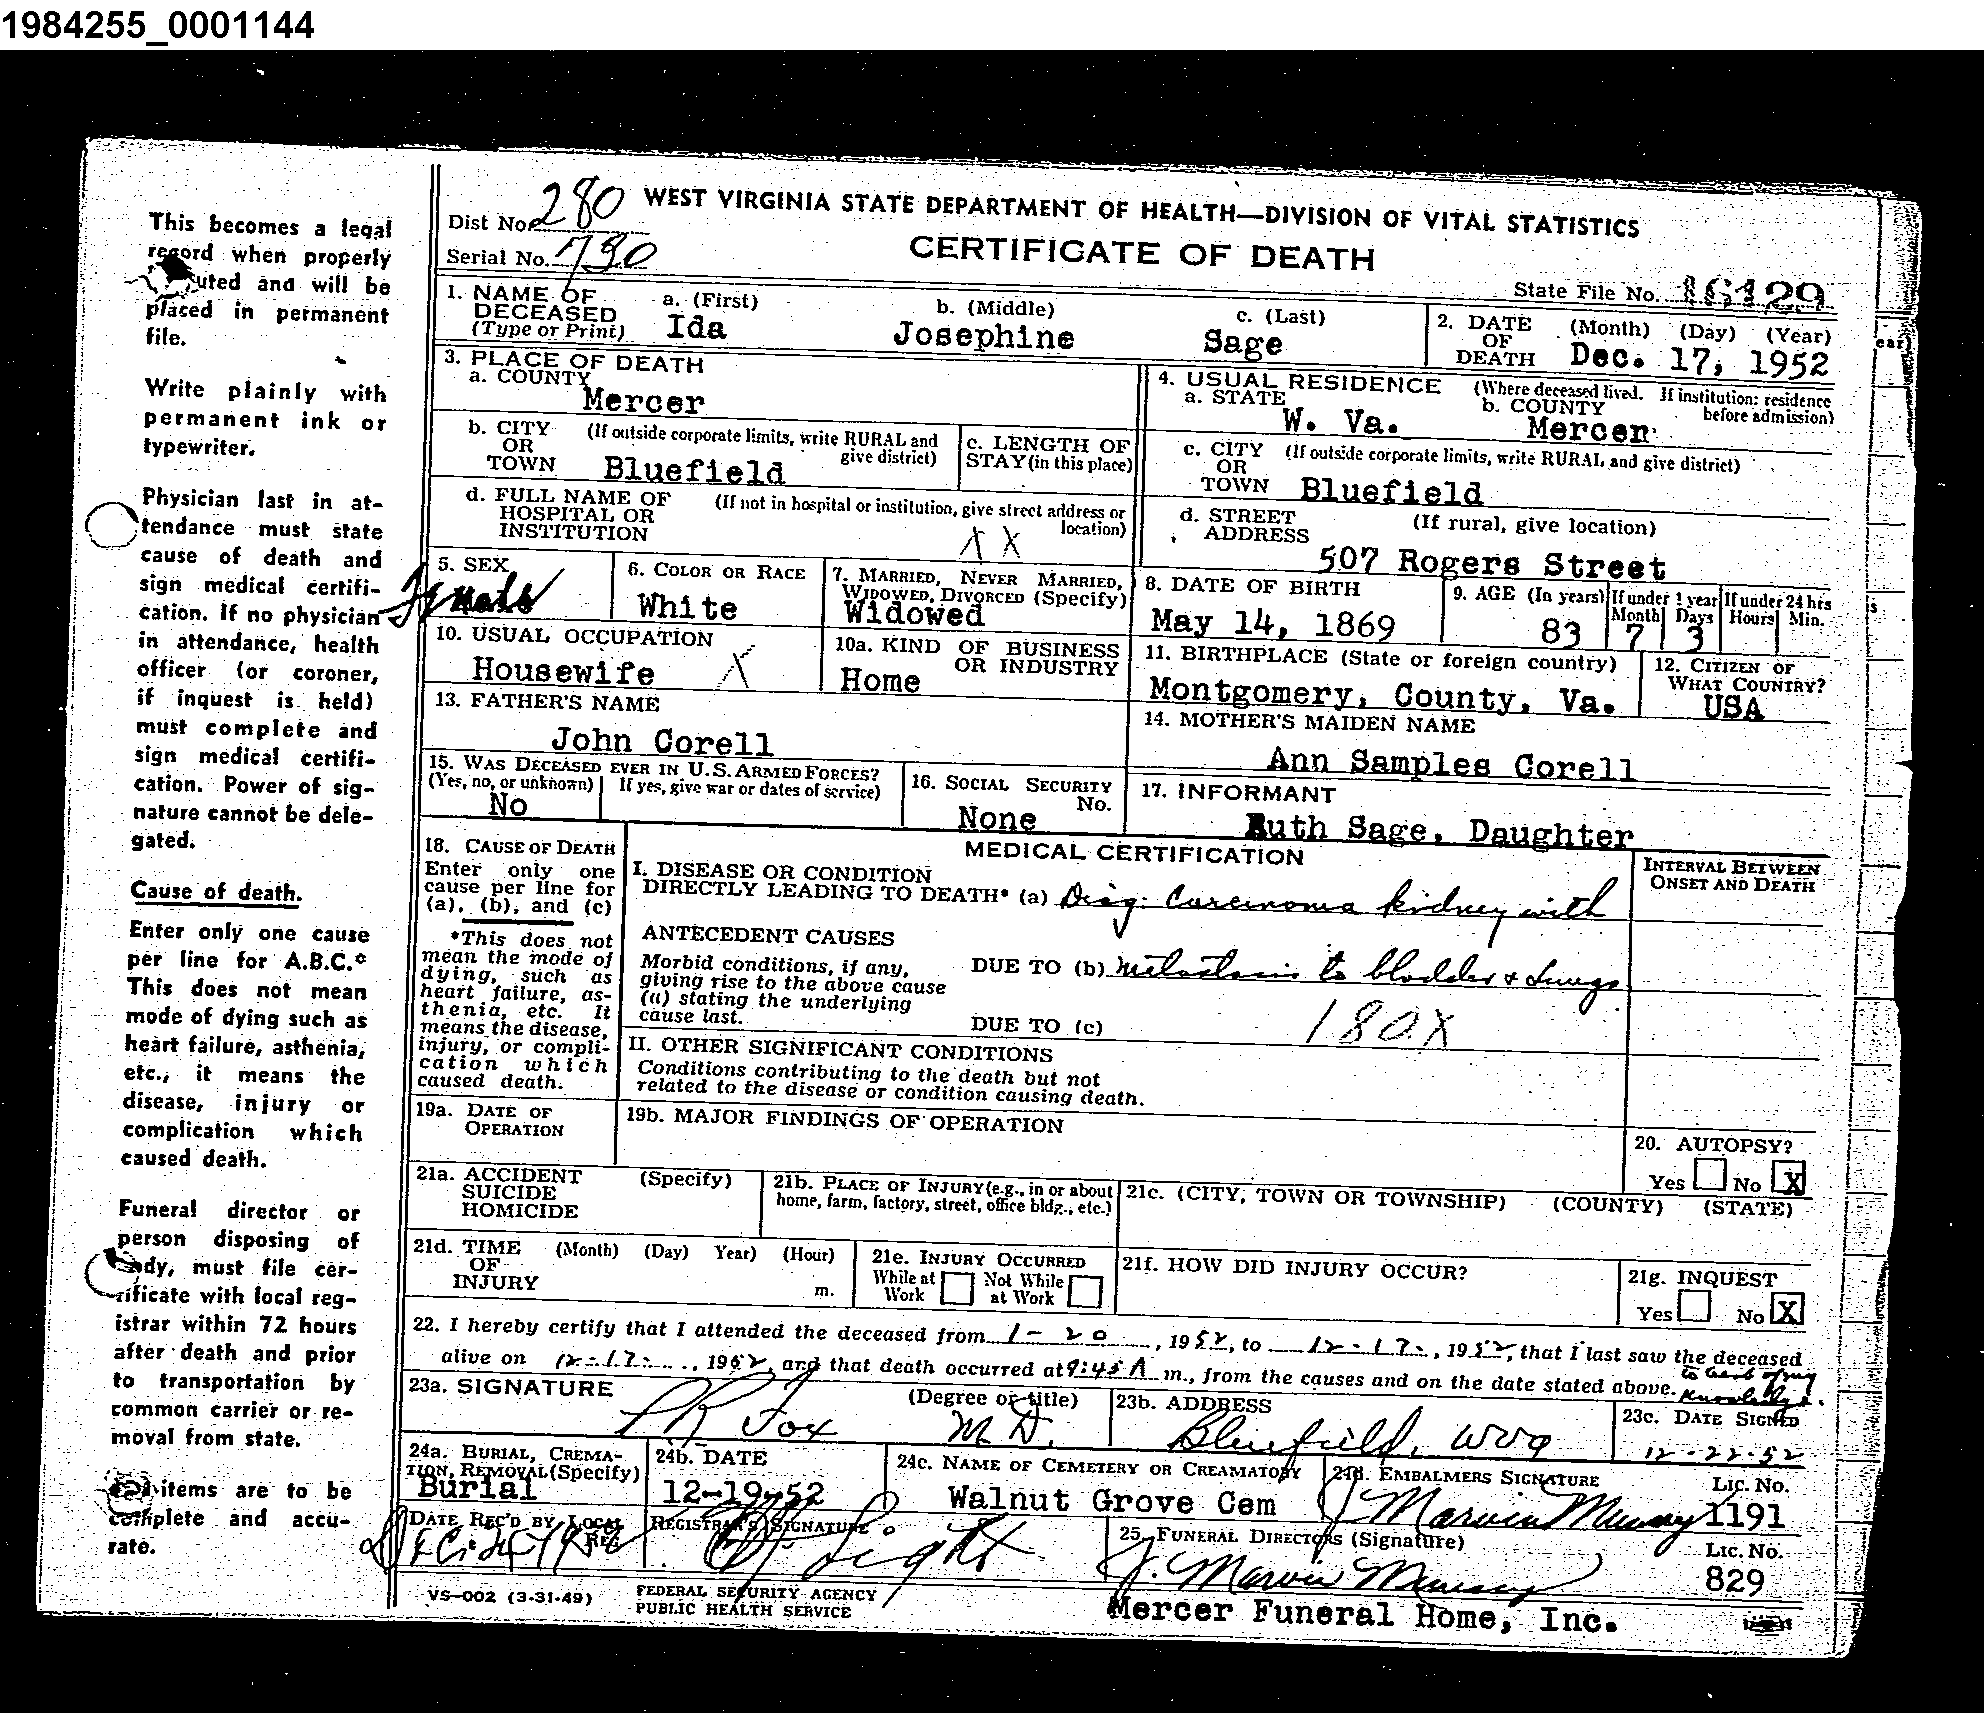 1984255_0001144
WEST VIRGINIA STATE DEPARTMENT OF HEALTH—DIVISION OF VITAL STATISTICS
Dist No. 280
Serial No. 790
CERTIFICATE OF DEATH
State File No. 16129
1. NAME OF DECEASED (Type or Print) a. (First) Ida b. (Middle) Josephine c. (Last) Sage
2. DATE OF DEATH (Month) (Day) (Year) Dec. 17, 1952
3. PLACE OF DEATH
a. COUNTY Mercer
4. USUAL RESIDENCE (Where deceased lived. If institution: residence before admission)
a. STATE W. Va. b. COUNTY Mercer
b. CITY OR TOWN (If outside corporate limits, write RURAL and give district) Bluefield
c. LENGTH OF STAY (in this place)
c. CITY OR TOWN (If outside corporate limits, write RURAL and give district) Bluefield
d. FULL NAME OF HOSPITAL OR INSTITUTION (If not in hospital or institution, give street address or location) X X
d. STREET ADDRESS (If rural, give location) 507 Rogers Street
5. SEX Female
6. COLOR OR RACE White
7. MARRIED, NEVER MARRIED, WIDOWED, DIVORCED (Specify) Widowed
8. DATE OF BIRTH May 14, 1869
9. AGE (In years) 83 If under 1 year Month 7 Days 3 If under 24 hrs Hours Min.
10. USUAL OCCUPATION Housewife X
10a. KIND OF BUSINESS OR INDUSTRY Home
11. BIRTHPLACE (State or foreign country) Montgomery, County, Va.
12. CITIZEN OF WHAT COUNTRY? USA
13. FATHER'S NAME John Corell
14. MOTHER'S MAIDEN NAME Ann Samples Corell
15. WAS DECEASED EVER IN U.S. ARMED FORCES? (Yes, no, or unknown) No If yes, give war or dates of service)
16. SOCIAL SECURITY No. None
17. INFORMANT Ruth Sage, Daughter
18. CAUSE OF DEATH
Enter only one cause per line for (a), (b), and (c)
*This does not mean the mode of dying, such as heart failure, asthenia, etc. It means the disease, injury, or complication which caused death.
MEDICAL CERTIFICATION
INTERVAL BETWEEN ONSET AND DEATH
I. DISEASE OR CONDITION DIRECTLY LEADING TO DEATH* (a) Diag: Carcinoma kidney with
ANTECEDENT CAUSES
Morbid conditions, if any, giving rise to the above cause (a) stating the underlying cause last.
DUE TO (b) metastasis to bladder & Lungs
DUE TO (c) 180X
II. OTHER SIGNIFICANT CONDITIONS
Conditions contributing to the death but not related to the disease or condition causing death.
19a. DATE OF OPERATION
19b. MAJOR FINDINGS OF OPERATION
20. AUTOPSY? Yes No X
21a. ACCIDENT SUICIDE HOMICIDE (Specify)
21b. PLACE OF INJURY (e.g., in or about home, farm, factory, street, office bldg., etc.)
21c. (CITY, TOWN OR TOWNSHIP) (COUNTY) (STATE)
21d. TIME OF INJURY (Month) (Day) Year) (Hour) m.
21e. INJURY OCCURRED While at Work Not While at Work
21f. HOW DID INJURY OCCUR?
21g. INQUEST Yes No X
22. I hereby certify that I attended the deceased from 1-20, 1952, to 12-17-, 1952, that I last saw the deceased
alive on 12-17-, 1952, and that death occurred at 9:45 A m., from the causes and on the date stated above. to best of my knowledge.
23a. SIGNATURE (Degree or title) P R Fox M.D.
23b. ADDRESS Bluefield, W Va
23c. DATE SIGNED 12-22-52
24a. BURIAL, CREMATION, REMOVAL (Specify) Burial
24b. DATE 12-19-52
24c. NAME OF CEMETERY OR CREAMATORY Walnut Grove Cem
24d. EMBALMERS SIGNATURE J. Marvin Munsey Lic. No. 1191
DATE REC'D BY LOCAL REG.
REGISTRAR'S SIGNATURE
25. FUNERAL DIRECTORS (Signature) J. Marvin Munsey Lic. No. 829
Mercer Funeral Home, Inc.
VS-002 (3-31-49)
FEDERAL SECURITY AGENCY
PUBLIC HEALTH SERVICE
This becomes a legal
record when properly
uted and will be
placed in permanent
file.
Write plainly with
permanent ink or
typewriter.
Physician last in at-
tendance must state
cause of death and
sign medical certifi-
cation. If no physician
in attendance, health
officer (or coroner,
if inquest is held)
must complete and
sign medical certifi-
cation. Power of sig-
nature cannot be dele-
gated.
Cause of death.
Enter only one cause
per line for A.B.C.*
This does not mean
mode of dying such as
heart failure, asthenia,
etc., it means the
disease, injury or
complication which
caused death.
Funeral director or
person disposing of
body, must file cer-
tificate with local reg-
istrar within 72 hours
after death and prior
to transportation by
common carrier or re-
moval from state.
items are to be
complete and accu-
rate.